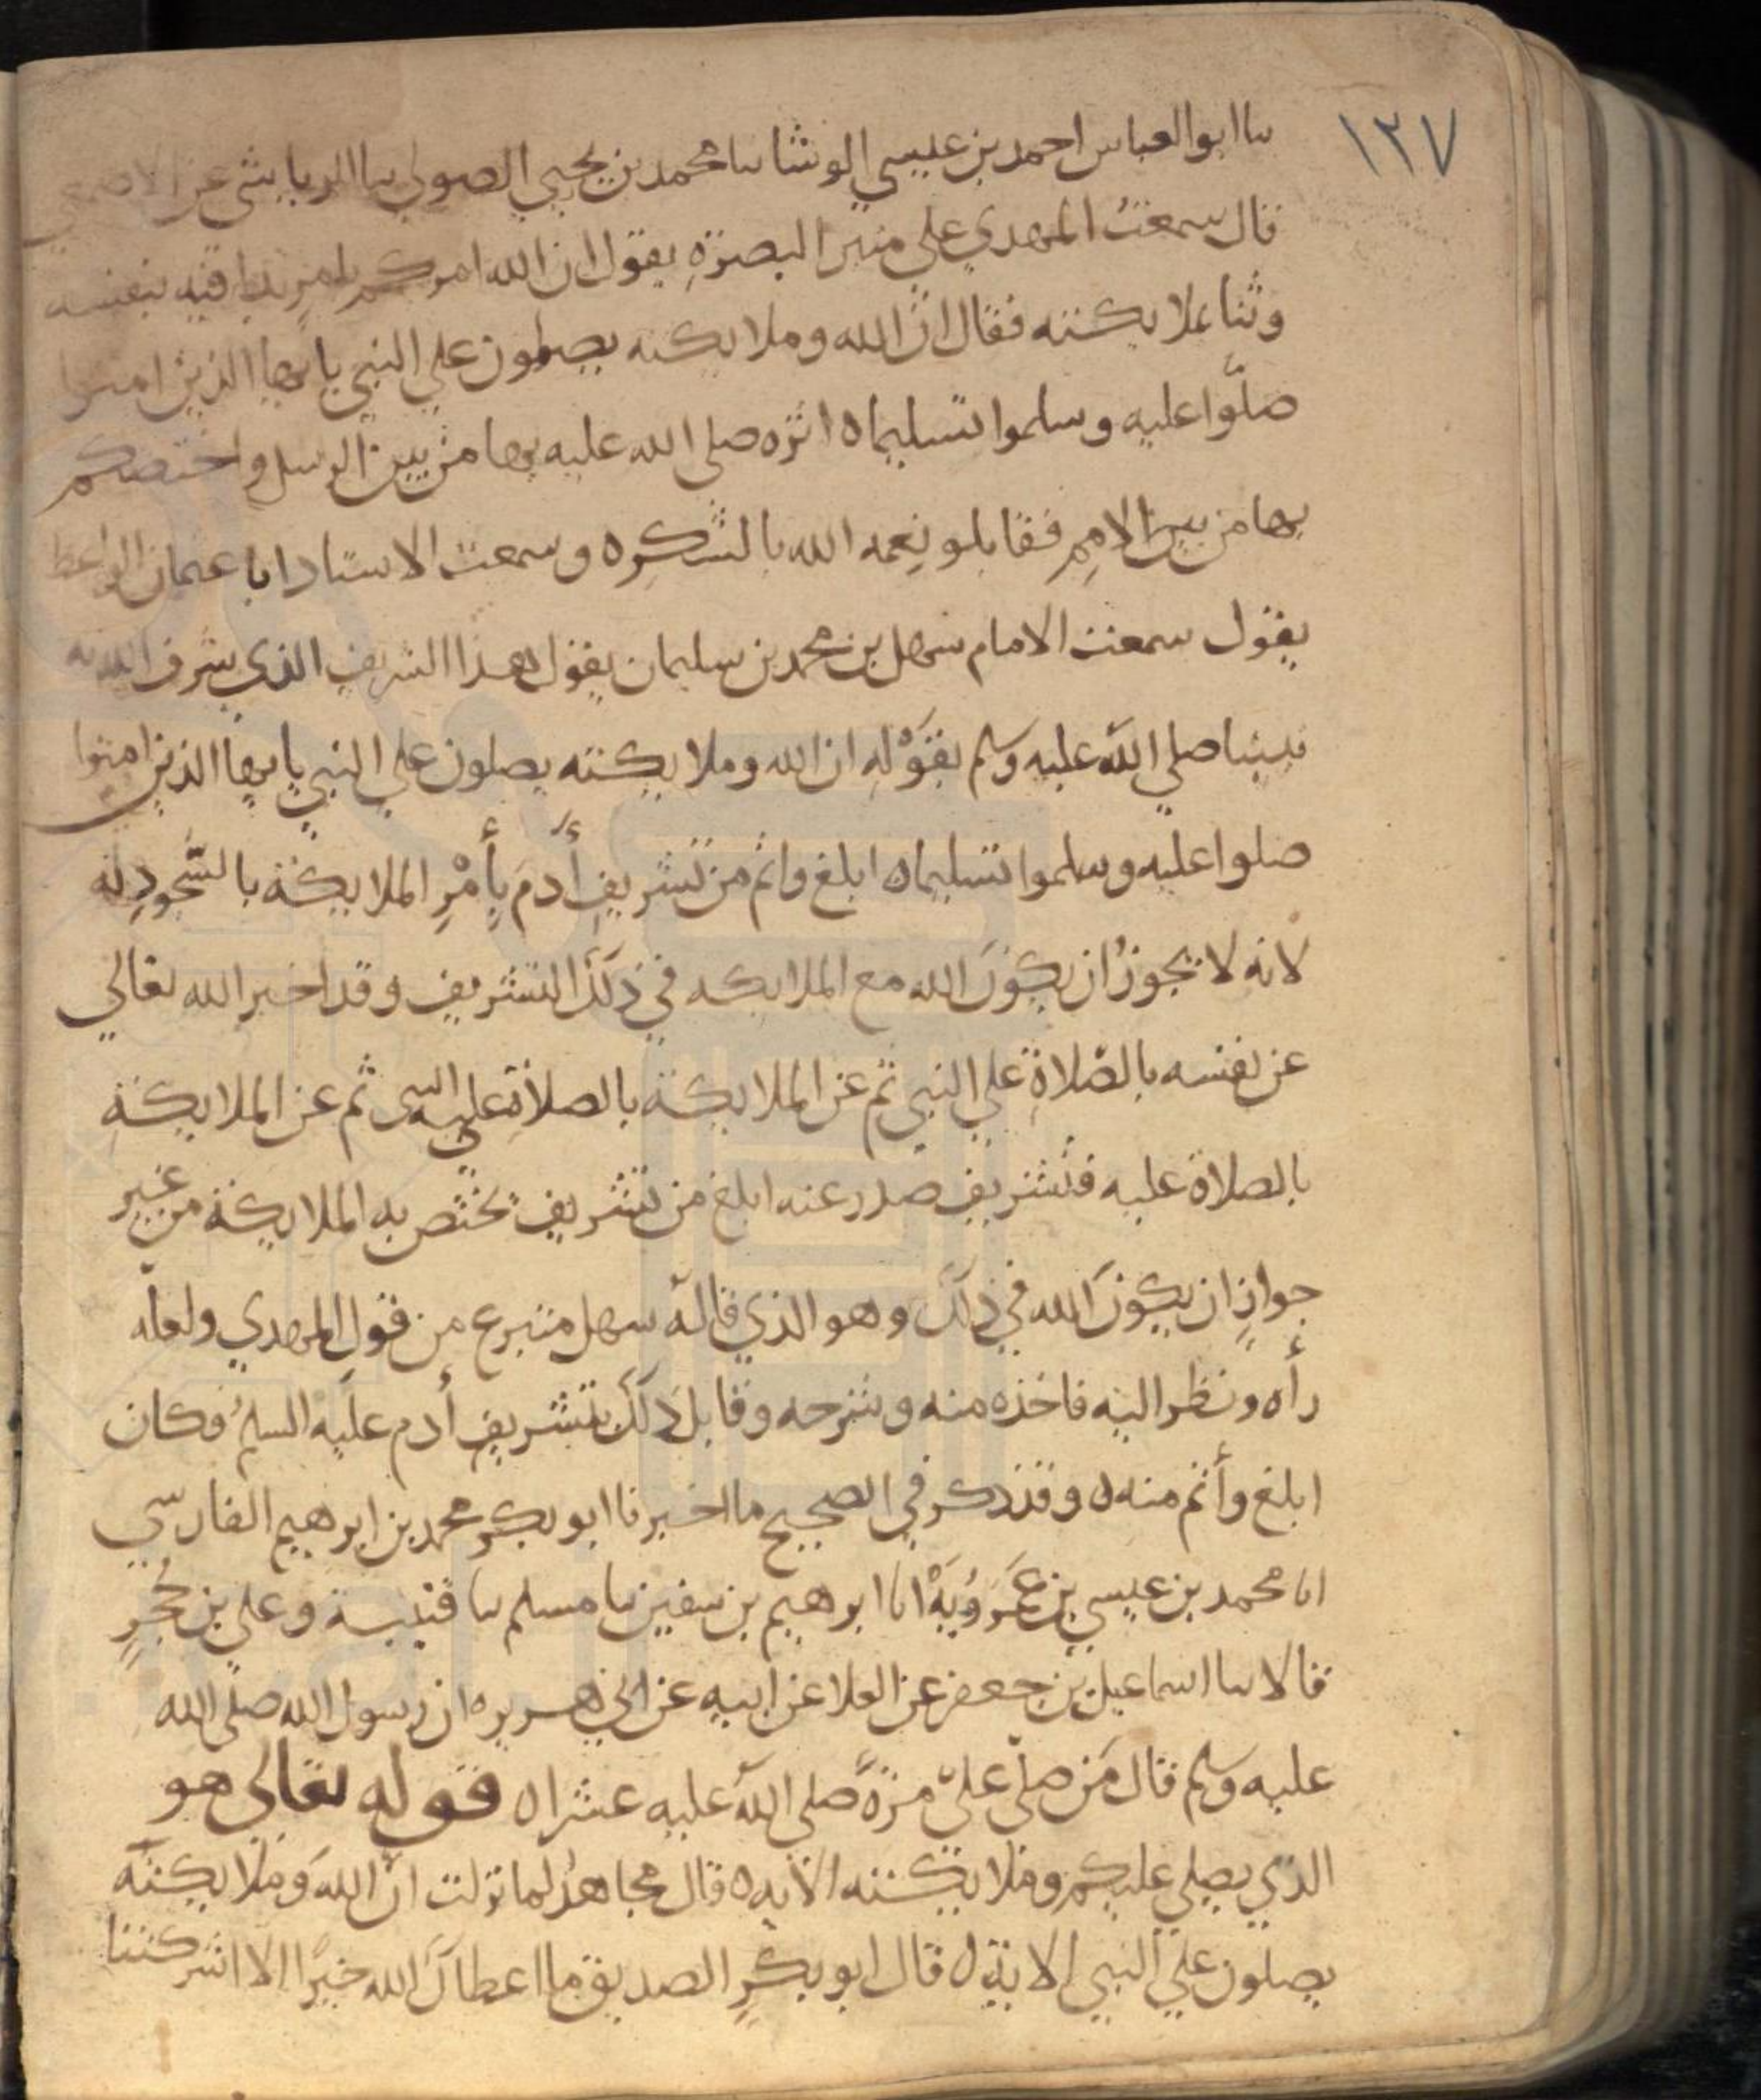 ١٢٧
ىنا ابو العباس احمد بن عيسي الوشا ىنا محمد بن يحيي الصولي ىنا الرياشي عن الاصمعي
قال سمعت المهدي علي منبر البصرة يقول ان الله امركم بامر بدا فيه بنفسه
وثنا بملايكته فقال ان الله وملايكته يصلون علي النبي يا ايها الذين امنوا
صلوا عليه وسلموا تسليما ه اثره صلي الله عليه بها من بين الرسل واختصكم
بها من بين الامم فقابلو نعمه الله بالشكر ه وسمعت الاستاد ابا عثمان الواعظ
يقول سمعت الامام سهل بن محمد بن سليمان يقول هذا الشريف الذي شرف الله به
نبينا صلي الله عليه وسلم بقوله ان الله وملايكته يصلون علي النبي يا ايها الذين امنوا
صلوا عليه وسلموا تسليما ه ابلغ واتم من تشريف أدم بأمر الملايكة بالسجود له
لانه لا يجوز ان يكون الله مع الملايكه في ذلك التشريف وقد اخبر الله تعالي
عن نفسه بالصلاة علي النبي ثم عن الملايكة بالصلاة علي النبي ثم عن الملايكة
بالصلاة عليه فتشريف صدر عنه ابلغ من تشريف تختص به الملايكة من غير
جواز ان يكون الله في ذلك وهو الذي قاله سهل منتزع من قول المهدي ولعله
رأه ونظر اليه فاخذه منه وشرحه وقابل ذلك بتشريف أدم عليه السلم فكان
ابلغ وأتم منه ه وقد ذكر في الصحيح ما اخبرنا ابو بكر محمد بن ابرهيم الفارسي
انا محمد بن عيسي بن عمرويه انا ابرهيم بن سفين ىنا مسلم ىنا قتيبة وعلي بن حجر
قالا ىنا اسماعيل بن جعفر عن العلا عن ابيه عن ابي هريره ان رسول الله صلي الله
عليه وسلم قال من صلي علي مرة صلي الله عليه عشرا ه قوله تعالى هو
الذي يصلي عليكم وملايكته الايه ه قال مجاهد لما نزلت ان الله وملايكته
يصلون علي النبي الاية ه قال ابو بكر الصديق ما اعطاك الله خيرا الا اشركتنا